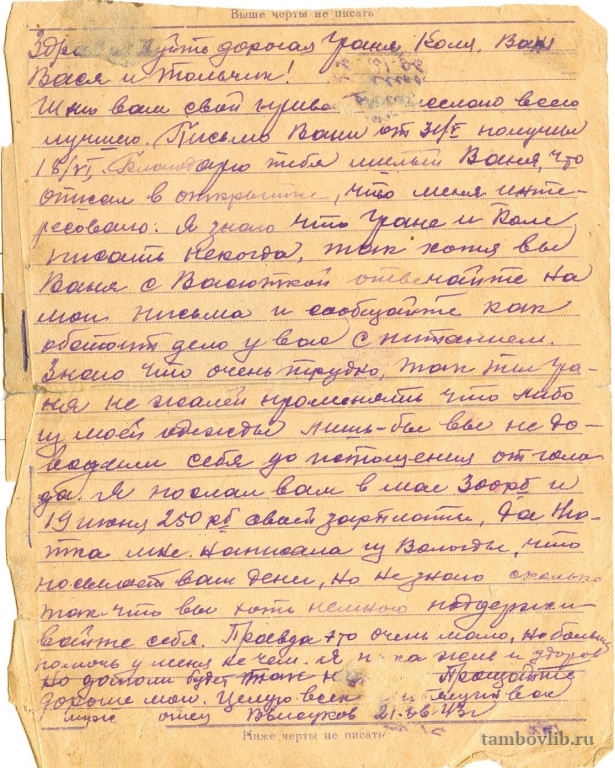 Выше черты не писать
Здравствуйте дорогая Граня Коля, Ваня
Вася и Тольчик!
Шлю вам свой привет желаю всего
лучшего. Письмо Вани от 31/V получил
18/VI. Благодарю тебя милый Ваня, что
описал в открытке, что меня инте-
ресовало. Я знаю что Гране и Коле
писать некогда, так хотя вы
Ваня с Васюткой отвечайте на
мои письма и сообщайте как
обстоит дело у вас с питанием.
Знаю что очень трудно, так ты Гра-
ня не жалей променять что либо
из моей одежды лишь-бы вы не до-
водили себя до истощения от голо-
да. Я послал вам в мае 300 рб и
19 июня 250 рб своей зарплаты, да Ню-
тка мне написала из Вологды, что
посылает вам деньги, но не знаю сколько
так что вы хоть немного поддержи-
вайте себя. Правда это очень мало, но больше
помочь у меня не чем. Я пока жив и здоров
но долголи будет так Прощайте
дорогие мои. Целую всех любящий вас
муж отец 21-06 43г
Ниже черты не писать
tambovlib.ru